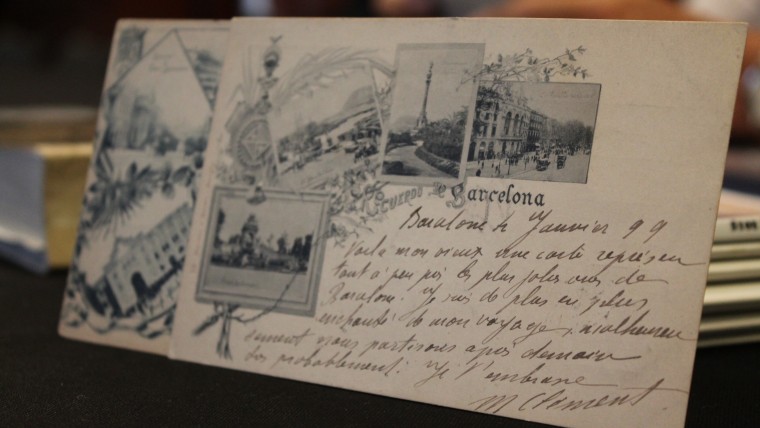 Recuerdo de Barcelona
Barcelone le Janvier 99
Voilà mon vieux une carte représen
tant à peu près les plus jolies vues de
Barcelone. Je suis de plus en plus
enchanté de mon voyage, malheureu
sement nous partirons après demain
probablement. Je t'embrasse
M Clément